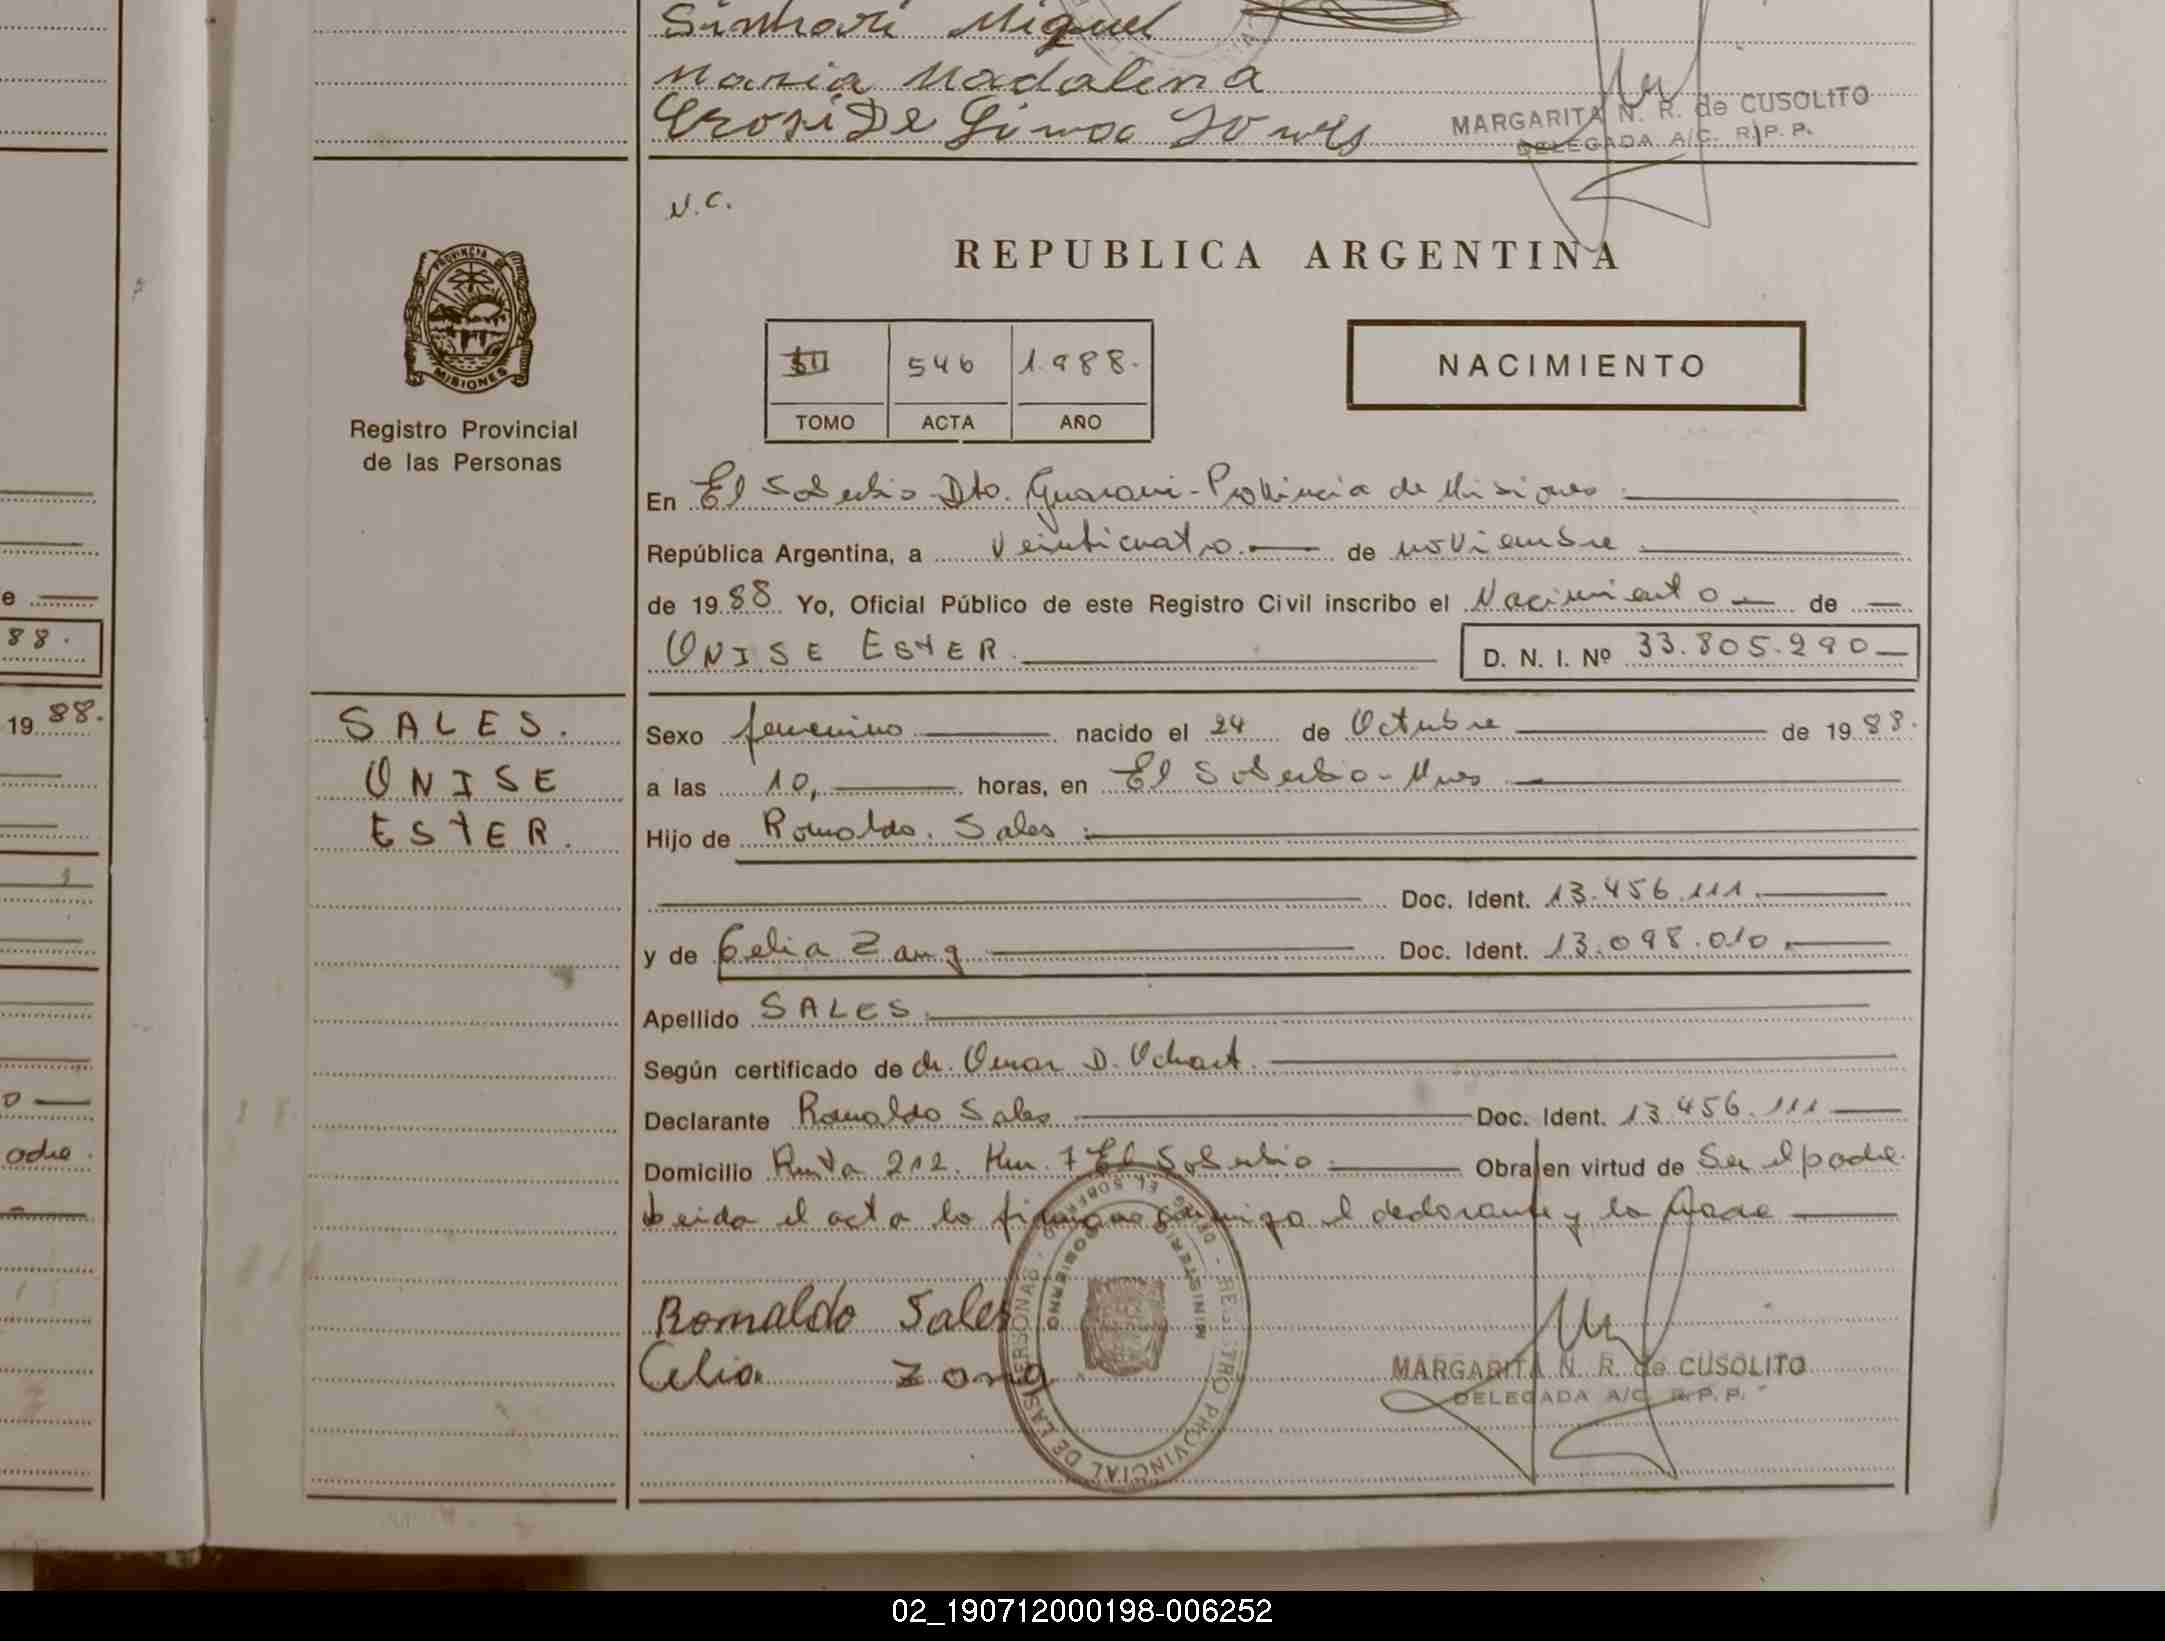 Miguel
Maria Madalena
MARGARITA N. R. de CUSOLITO
DELEGADA A/C. R.P.P.
N.C.
REPUBLICA ARGENTINA
PROVINCIA DE
MISIONES
Registro Provincial
de las Personas
546 1.988.
TOMO ACTA AÑO
NACIMIENTO
En El Soberbio Dto. Guarani - Provincia de Misiones
República Argentina, a Veinticuatro de noviembre
de 1988 Yo, Oficial Público de este Registro Civil inscribo el Nacimiento de
ONISE ESTER D. N. I. Nº 33.805.290
e
88.
19 88.
SALES.
ONISE
ESTER.
Sexo femenino nacido el 24 de Octubre de 1988.
a las 10, horas, en El Soberbio - Mnes
Hijo de Romaldo. Sales
Doc. Ident. 13.456.111
y de Celia Zang Doc. Ident. 13.098.010
Apellido SALES
Según certificado de dr. Omar D. Uchart.
Declarante Romaldo Sales Doc. Ident. 13.456.111
Domicilio Ruta 212. Km. 7 El Soberbio Obra en virtud de Ser el padre.
Leida el acta la firman conmigo el declarante y la madre
adre.
Romaldo Sales
Celia Zang
REGISTRO PROVINCIAL DE LAS PERSONAS - DELEG. EL SOBERBIO
MINISTERIO GOBIERNO
MARGARITA N. R. de CUSOLITO
DELEGADA A/C. R.P.P.
02_190712000198-006252